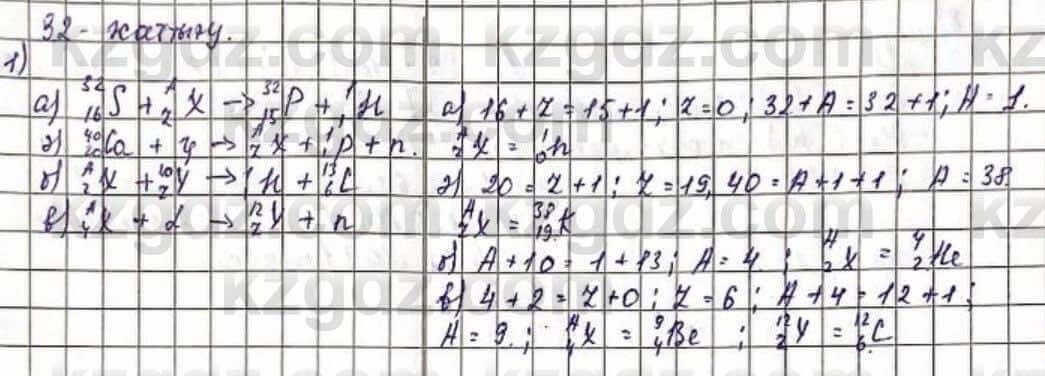 32 - жаттығу.
1)
а) ³²₁₆S + ᴬ_ZX → ³²₁₅P + ¹₁H
ә) ⁴⁰₂₀Ca + γ → ᴬ_ZX + ¹₁p + n.
б) ᴬ₂X + ¹⁰_ZY → ¹₁H + ¹³₆C
в) ᴬ₄X + α → ¹²_ZY + n
а) 16 + Z = 15 + 1; Z = 0; 32 + A = 32 + 1; A = 1.
ᴬ_ZX = ¹₀n
ә) 20 = Z + 1; Z = 19, 40 = A + 1 + 1; A = 38
ᴬ_ZX = ³⁸₁₉K
б) A + 10 = 1 + 13; A = 4. ; ᴬ₂X = ⁴₂He
в) 4 + 2 = Z + 0; Z = 6; A + 4 = 12 + 1;
A = 9. ; ᴬ₄X = ⁹₄Be ; ¹²_ZY = ¹²₆C
kzgdz.com